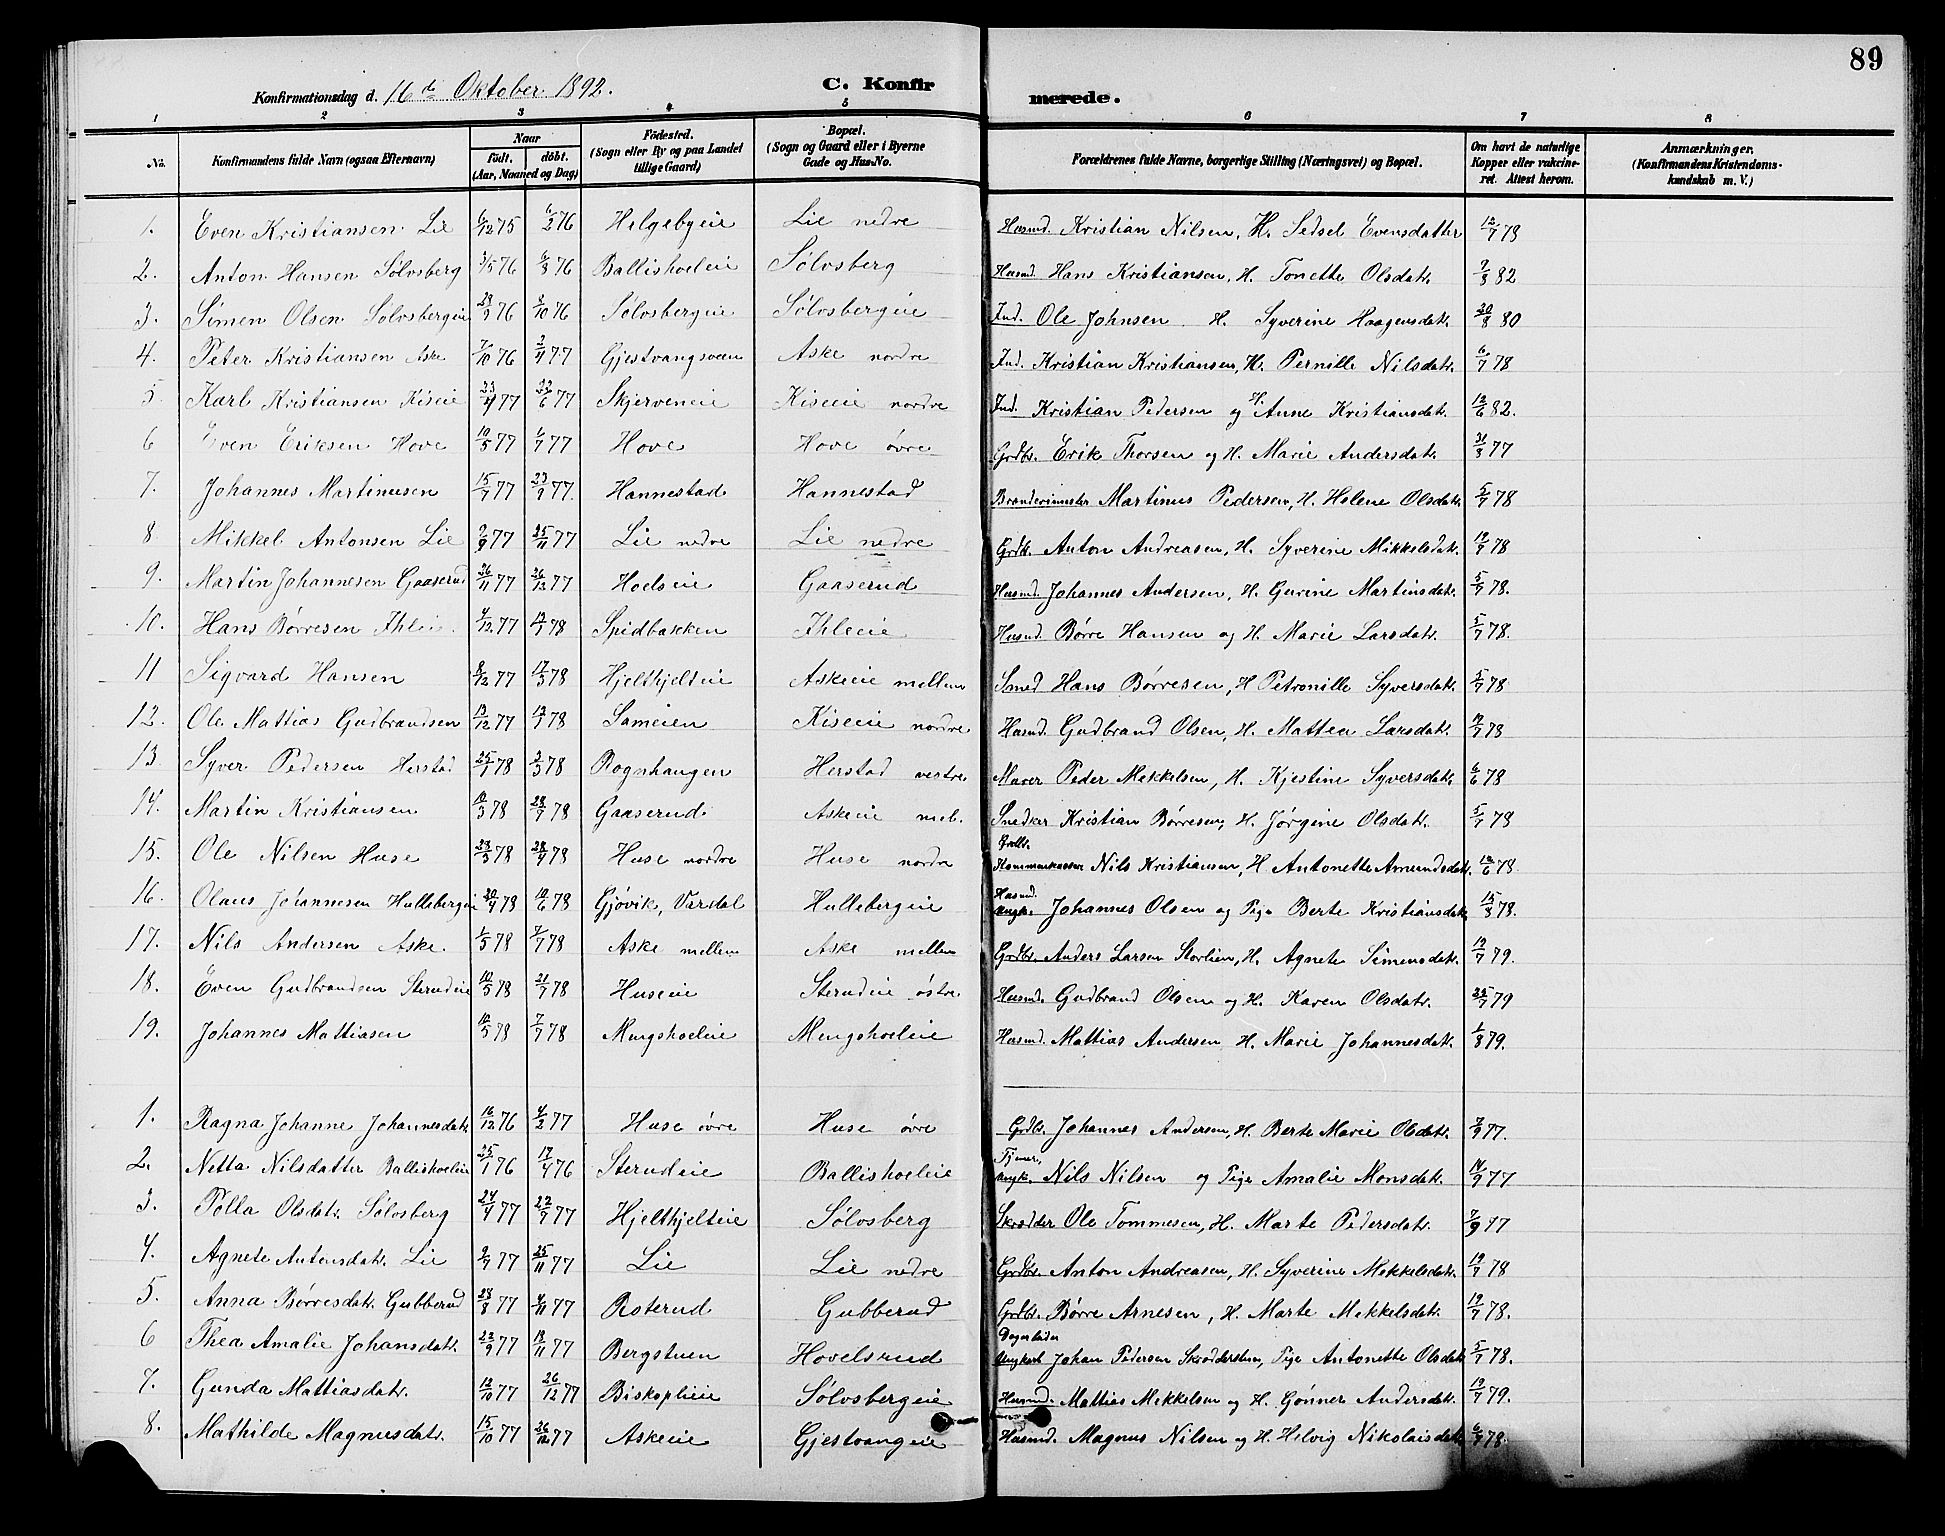 89
Konfirmationsdag d. 16de Oktober 1892. C. Konfirmerede.
1 2 3 4 5 6 7 8
No. Konfirmandens fulde Navn (ogsaa Efternavn) Naar födt. döbt. (Aar, Maaned og Dag) Födested. (Sogn eller By og paa Landet tillige Gaard) Bopæl. (Sogn og Gaard eller i Byerne Gade og Hus-No. Forældrenes fulde Navne, borgerlige Stilling (Næringsvei) og Bopæl. Om havt de naturlige Kopper eller vakcineret. Attest herom. Anmærkninger. (Konfirmandens Kristendomskundskab m. V.)
1. Even Kristiansen Lie 6/12 75 6/2 76 Helgebyeie Lie nedre Husmd. Kristian Nilsen, H. Sedsel Evensdatter 12/7 78
2. Anton Hansen Sølvsberg 3/5 76 6/8 76 Ballishoeleie Sølvsberg Husmd. Hans Kristiansen, H. Tonette Olsdatr. 9/8 82
3. Simen Olsen Sølvsbergeie 28/9 76 8/10 76 Sølvsbergeie Sølvsbergeie Ind. Ole Johnsen H. Syverine Haagensdatr. 30/8 80
4. Peter Kristiansen Aske 7/10 76 2/4 77 Gjestvangsveen Aske nordre Ind. Kristian Kristiansen, H. Pernille Nilsdatr. 6/7 78
5. Karl Kristiansen Kiseie 23/4 77 22/6 77 Skjerveneie Kiseie nordre Ind. Kristian Pedersen og H. Anne Kristiansdatr. 12/6 82.
6 Even Eriksen Hove 10/5 77 6/7 77 Hove Hove øvre Grdbr. Erik Thorsen og H. Marie Andersdatr. 31/8 77
7. Johannes Martinusen 15/7 77 23/9 77. Hannestad Hannestad Branderimester Martinus Pedersen, H. Helene Olsdatr. 5/7 78
8. Mikkel Antonsen Lie 9/9 77 25/11 77 Lie nedre Lie nedre Grdb. Anton Andreasen, H. Syverine Mikkelsdatr. 19/7 78
9. Martin Johannesen Gaaserud 26/11 77 26/12 77 Hoelseie Gaaserud Husmd. Johannes Andersen, H. Gurine Martinsdatr. 5/7 78.
10. Hans Børresen Ihleie 4/12 77 13/1 78 Spidbakken Ihleie Husmd. Børre Hansen og H. Marie Larsdatr. 5/7 78.
11 Sigvard Hansen 8/12 77 17/3 78 Hjelthjelteie Askeie mellem Smed Hans Børresen, H Petronille Syversdatr. 5/7 78
12. Ole Mattias Gudbrandsen 13/12 77 13/1 78 Sameien Kiseie nordre Husmd. Gudbrand Olsen, H. Mattea Larsdatr. 19/7 78
13. Syver Pedersen Herstad 25/1 78 3/3 78 Rognhaugen Herstad vestre Murer Peder Mekkelsen, H. Kjestine Syversdatr. 6/6 78
14. Martin Kristiansen 10/3 78 28/7 78 Gaaserud Askeie mel. Snedker Kristian Børresen, H. Jørgine Olsdatr. 5/7 78
15. Ole Nilsen Huse 23/3 78 28/4 78 Huse nordre Huse nordre Nils Kristiansen, H Antonette Amundsdatr. 12/6 78.
16. Olaus Johannesen Hullebergeie 20/4 78 10/6 78 Gjøvik, Vardal Hullebergeie Husmd. Ungk. Johannes Olsen og Pige Berte Kristiansdatr. 15/8 78.
17. Nils Andersen Aske. 1/5 78 7/7 78 Aske mellem Aske mellem Grdbr. Anders Larsen Storlien, H. Agnete Simensdatr. 19/7 79.
18. Even Gudbrandsen Sterudeie 10/5 78 21/7 78 Huseie Sterudeie østre. Husmd. Gudbrand Olsen og H. Karen Olsdatr. 25/7 79
19. Johannes Mattiasen 12/5 78 7/7 78 Mengshoeleie Mengshoeleie Husmd. Mattias Andersen H. Marie Johannesdatr. 1/8 79.
1. Ragna Johanne Johannesdatr. 16/12 76 4/2 77 Huse øvre Huse øvre Grdb. Johannes Andersen, H. Berte Marie Olsdatr. 7/9 77.
2. Netta Nilsdatter Ballishoeleie 25/1 76 17/4 76 Sterudeie Ballishoeleie Tjener, Ungk. Nils Nilsen og Pige Amalie Monsdatr. 14/9 77
3. Polla Olsdatr. Sølvsberg 24/4 77 22/9 77 Hjelthjelteie Sølvsberg Skrædder Ole Tommesen, H. Marte Pedersdatr. 7/9 77
4. Agnete Antonsdatr. Lie 9/7 77 25/11 77 Lie Lie nedre Grdbr. Anton Andreasen, H. Syverine Mekkelsdatr. 19/7 78
5. Anna Børresdatr. Gubberud 28/8 77 4/11 77 Roterud Gubberud Grdbr. Børre Arnesen, H. Marte Mekkelsdatr. 19/7 78.
6 Thea Amalie Johansdatr. 22/9 77 18/11 77 Bergstuen Hovelsrud Dagarbeider Ungkarl Johan Pedersen Skrædderstuen, Pige Antonette Olsdatr. 5/7 78.
7. Gunda Mattiasdatr. 12/10 77 26/12 77 Biskoplieie Sølvsbergeie Husmd. Mattias Mekkelsen og H. Gønner Andersdatr. 19/7 79.
8. Mathilde Magnusdatr. 15/10 77 26/12 77 Askeie Gjestvangeie Husmd. Magnus Nilsen og H. Helvig Nikolaisdatr. 6/7 78.